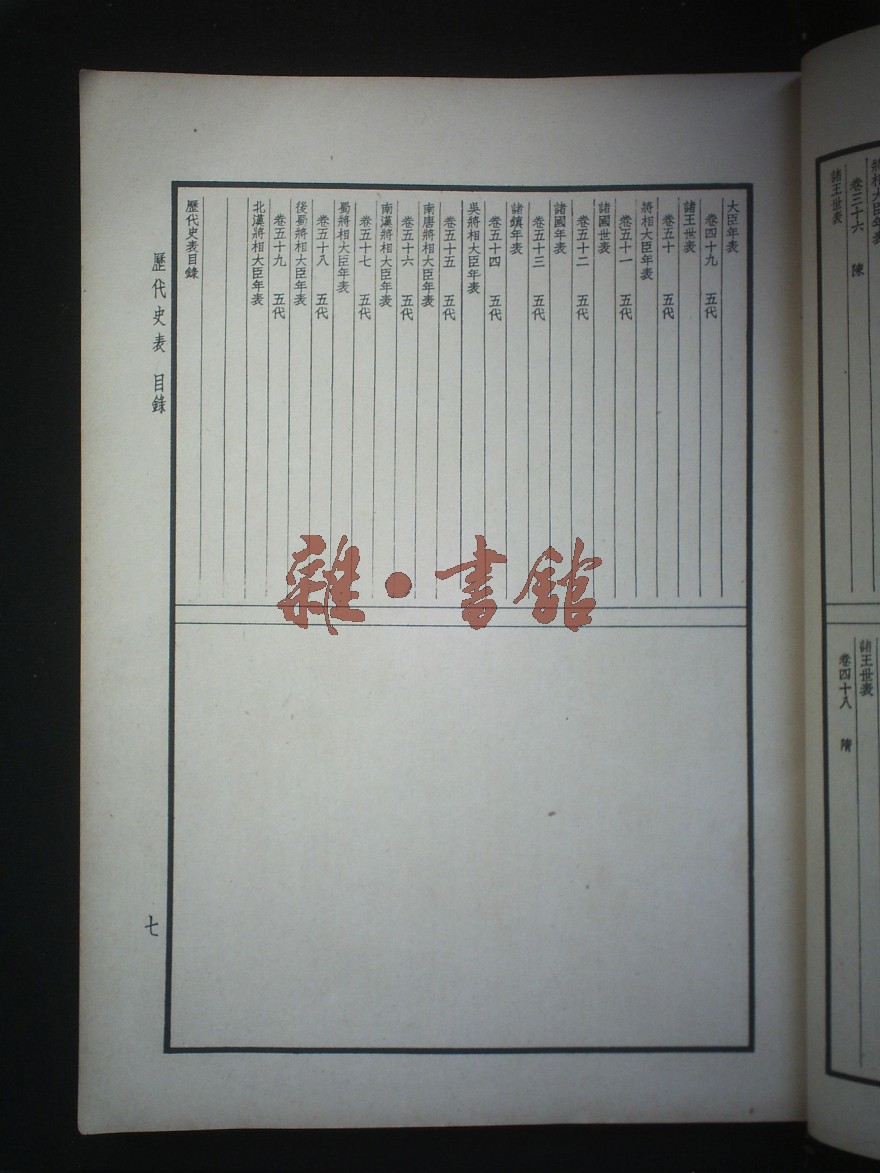 將相大臣年表
卷三十六　陳
諸王世表
諸王世表
卷四十八　隋
大臣年表
卷四十九　五代
諸王世表
卷五十　五代
將相大臣年表
卷五十一　五代
諸國世表
卷五十二　五代
諸國年表
卷五十三　五代
諸鎮年表
卷五十四　五代
吳將相大臣年表
卷五十五　五代
南唐將相大臣年表
卷五十六　五代
南漢將相大臣年表
卷五十七　五代
蜀將相大臣年表
卷五十八　五代
後蜀將相大臣年表
卷五十九　五代
北漢將相大臣年表
歷代史表目錄
歷代史表　目錄
七
雜·書館